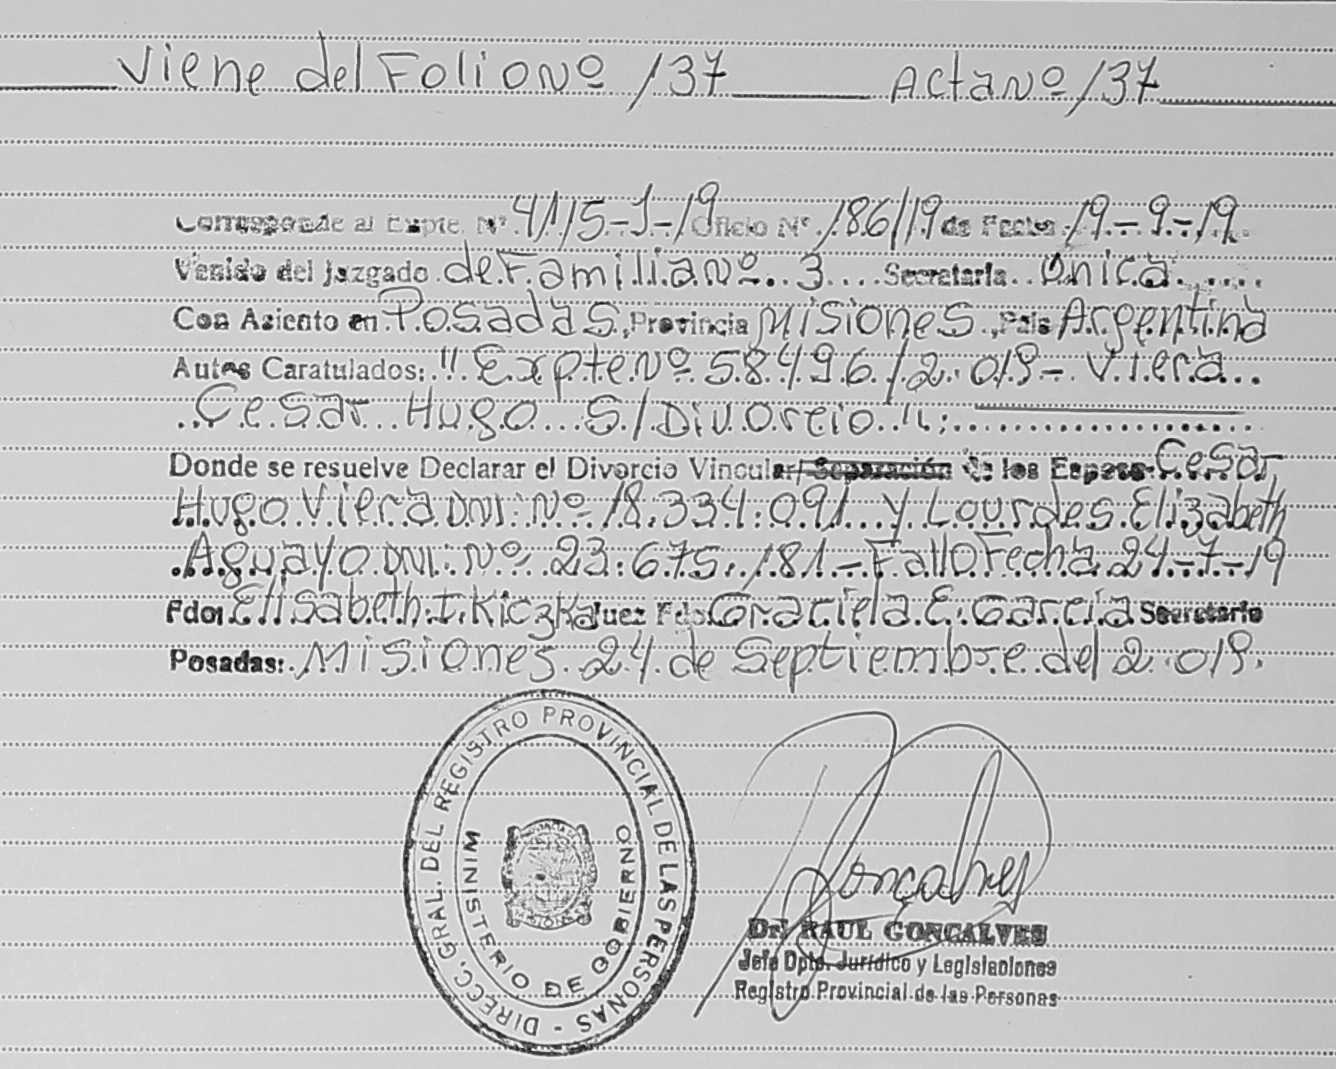 Viene del Folio Nº 137 Acta Nº 137
Corresponde al Expte. Nº 4115-J-19 Oficio Nº 186/19 de Fecha 19-9-19.
Venido del Juzgado de Familia Nº 3 Secretaria Unica
Con Asiento en Posadas, Provincia Misiones, País Argentina
Autos Caratulados: "Expte Nº 58496/2.019 - Viera
Cesar Hugo S/Divorcio";
Donde se resuelve Declarar el Divorcio Vincular/Separación de los Esposos Cesar
Hugo Viera DNI. Nº 18.334.091 y Lourdes Elizabeth
Aguayo DNI. Nº 23.675.181 - Fallo Fecha 24-7-19
Fdo: Elisabeth I. Kiczka Juez Fdo: Graciela E. García Secretario
Posadas: Misiones 24 de Septiembre del 2.019.
DIRECC. GRAL. DEL REGISTRO PROVINCIAL DE LAS PERSONAS -
MINISTERIO DE GOBIERNO
Goncalves
Dr. RAUL GONCALVES
Jefe Dpto. Jurídico y Legislaciones
Registro Provincial de las Personas